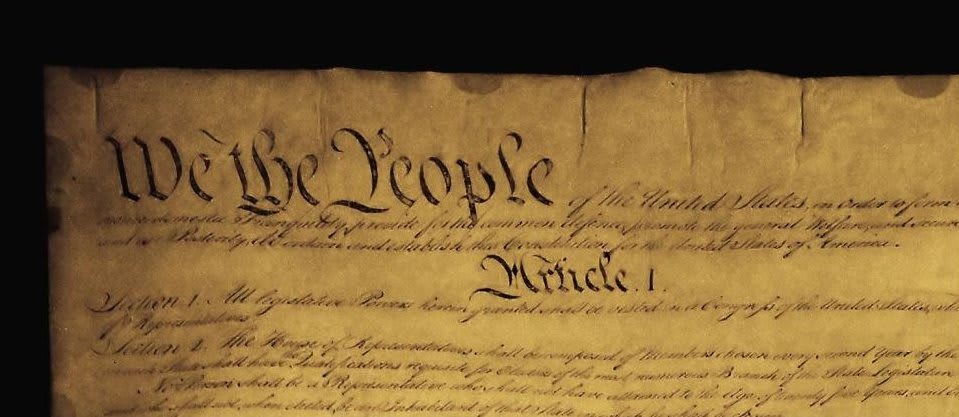 We the People of the United States, in Order to form
insure domestic Tranquility, provide for the common defence, promote the general Welfare, and secure
and our Posterity, do ordain and establish this Constitution for the United States of America.
Article. I.
Section. 1. All legislative Powers herein granted shall be vested in a Congress of the United States, which
of Representatives.
Section. 2. The House of Representatives shall be composed of Members chosen every second Year by the
in each State shall have the Qualifications requisite for Electors of the most numerous Branch of the State Legislature.
No Person shall be a Representative who shall not have attained to the Age of twenty five Years, and
and who shall not, when elected, be an Inhabitant of that State in which he shall be chosen.